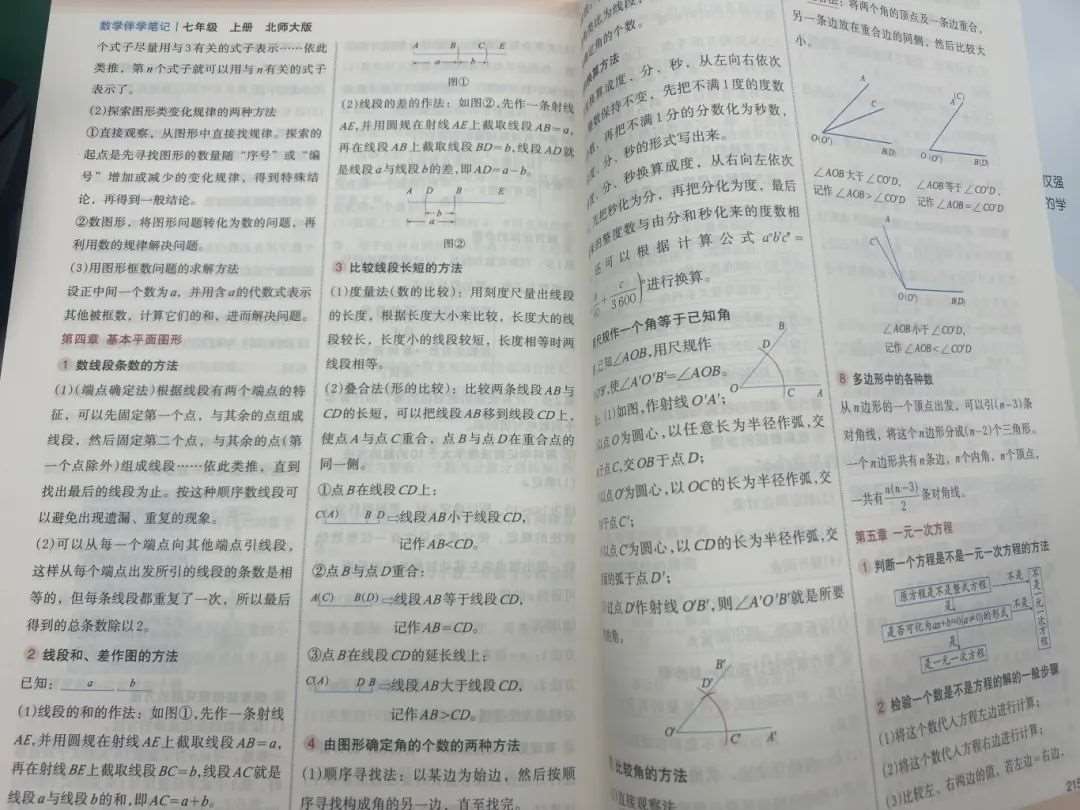 数学伴学笔记 七年级 上册 北师大版
个式子尽量用与3有关的式子表示……依此
类推，第n个式子就可以用与n有关的式子
表示了。
(2)探索图形类变化规律的两种方法
①直接观察，从图形中直接找规律。探索的
起点是先寻找图形的数量随“序号”或“编
号”增加或减少的变化规律，得到特殊结
论，再得到一般结论。
②数图形，将图形问题转化为数的问题，再
利用数的规律解决问题。
(3)用图形框数问题的求解方法
设正中间一个数为a，并用含a的代数式表示
其他被框数，计算它们的和、进而解决问题。
第四章 基本平面图形
1 数线段条数的方法
(1)(端点确定法)根据线段有两个端点的特
征，可以先固定第一个点，与其余的点组成
线段，然后固定第二个点，与其余的点(第
一个点除外)组成线段……依此类推，直到
找出最后的线段为止。按这种顺序数线段可
以避免出现遗漏、重复的现象。
(2)可以从每一个端点向其他端点引线段，
这样从每个端点出发所引的线段的条数是相
等的，但每条线段都重复了一次，所以最后
得到的总条数除以2。
2 线段和、差作图的方法
已知： a b
(1)线段的和的作法：如图①,先作一条射线
AE,并用圆规在射线AE上截取线段AB=a,
再在射线BE上截取线段BC=b,线段AC就是
线段a与线段b的和,即AC=a+b。
A B C E
a b
图①
(2)线段的差的作法：如图②,先作一条射线
AE,并用圆规在射线AE上截取线段AB=a,
再在线段AB上截取线段BD=b,线段AD就
是线段a与线段b的差,即AD=a-b。
A D B E
b
a
图②
3 比较线段长短的方法
(1)度量法(数的比较)：用刻度尺量出线段
的长度，根据长度大小来比较，长度大的线
段较长，长度小的线段较短，长度相等时两
线段相等。
(2)叠合法(形的比较)：比较两条线段AB与
CD的长短，可以把线段AB移到线段CD上，
使点A与点C重合，点B与点D在重合点的
同一侧。
①点B在线段CD上：
C(A) B D⇒线段AB小于线段CD,
记作AB<CD。
②点B与点D重合：
A(C) B(D)⇒线段AB等于线段CD,
记作AB=CD。
③点B在线段CD的延长线上：
C(A) D B⇒线段AB大于线段CD,
记作AB>CD。
4 由图形确定角的个数的两种方法
(1)顺序寻找法：以某边为始边，然后按顺
序寻找构成角的另一边，直至找完。
类比为线段，
定角的个数。
换算方法
换算成度、分、秒，从左向右依次
整数保持不变，先把不满1度的度数
，再把不满1分的分数化为秒数，
度、分、秒的形式写出来。
、分、秒换算成度，从右向左依次
先把秒化为分，再把分化为度，最后
的整度数与由分和秒化来的度数相
还可以根据计算公式a°b′c″=
c/3600)°进行换算。
尺规作一个角等于已知角
已知∠AOB,用尺规作
使∠A′O′B′=∠AOB。
B
D
O C A
(1)如图,作射线O′A′；
以点O为圆心,以任意长为半径作弧,交
于点C,交OB于点D；
以点O′为圆心,以OC的长为半径作弧,交
于点C′；
以点C′为圆心,以CD的长为半径作弧,交
的弧于点D′；
过点D′作射线O′B′,则∠A′O′B′就是所要
B′
D′
O′ C′ A′
比较角的方法
直接观察法
将两个角的顶点及一条边重合，
另一条边放在重合边的同侧，然后比较大
小。
A
C
O(O′) B(D)
A(C)
O(O′) B(D)
∠AOB大于∠CO′D, ∠AOB等于∠CO′D,
记作∠AOB>∠CO′D 记作∠AOB=∠CO′D
A
C
O(O′) B(D)
∠AOB小于∠CO′D,
记作∠AOB<∠CO′D
8 多边形中的各种数
从n边形的一个顶点出发，可以引(n-3)条
对角线，将这个n边形分成(n-2)个三角形。
一个n边形共有n条边，n个内角，n个顶点，
一共有n(n-3)/2条对角线。
第五章 一元一次方程
1 判断一个方程是不是一元一次方程的方法
原方程是不是整式方程 不是 不是一元一次方程
是
是否可化为ax+b=0(a≠0)的形式 不是
是
是一元一次方程
2 检验一个数是不是方程的解的一般步骤
(1)将这个数代入方程左边进行计算；
(2)将这个数代入方程右边进行计算；
(3)比较左、右两边的值，若左边=右边，
汉强
的学